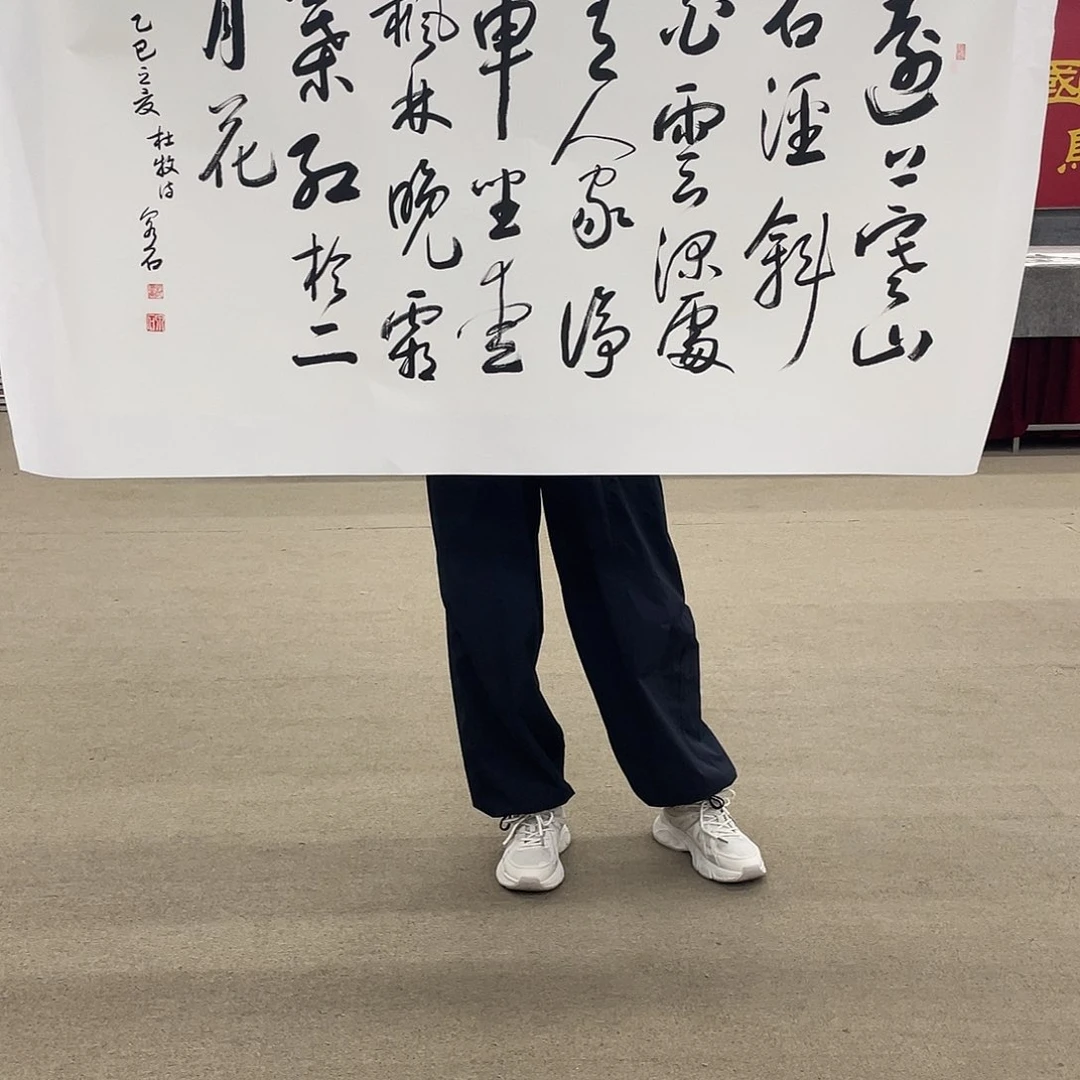 遠上寒山
石徑斜
白雲深處
有人家停
車坐愛
楓林晚霜
葉紅於二
月花
乙巳之夏 杜牧诗
國